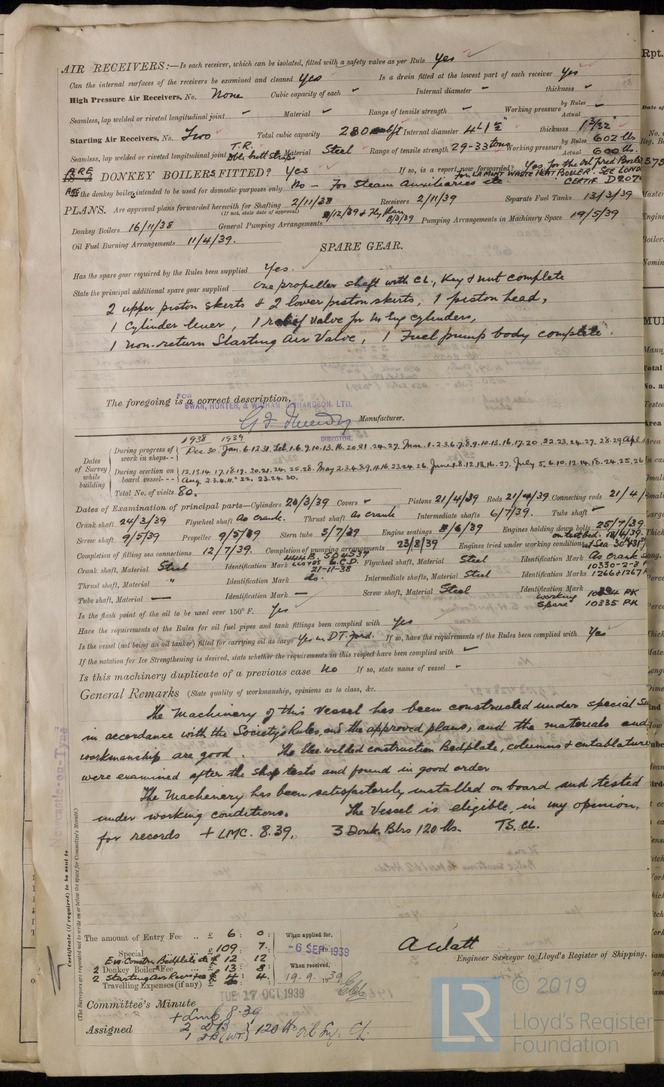 AIR RECEIVERS:—Is each receiver, which can be isolated, fitted with a safety valve as per Rule Yes
Can the internal surfaces of the receivers be examined and cleaned Yes Is a drain fitted at the lowest part of each receiver Yes
High Pressure Air Receivers, No. None Cubic capacity of each Internal diameter thickness
Seamless, lap welded or riveted longitudinal joint Material Range of tensile strength Working pressure by Rules Actual
Starting Air Receivers, No. Two Total cubic capacity 280 Internal diameter 4'-1½" thickness 1 3/32"
Seamless, lap welded or riveted longitudinal joint T.R. dbl butt straps Material Steel Range of tensile strength 29-33 tons Working pressure by Rules 602 lbs Actual 600 lbs.
ARE DONKEY BOILERS FITTED? Yes If so, is a report now forwarded? Yes for the oil fired Boilers
For LAMONT WASTE HEAT BOILER. SEE LOND. CERTIF.
ARE the donkey boilers intended to be used for domestic purposes only No - For Steam Auxiliaries etc
PLANS. Are approved plans forwarded herewith for Shafting 2/11/38 Receivers 2/11/39 Separate Fuel Tanks 13/3/39
(If not, state date of approval)
Donkey Boilers 16/11/38 General Pumping Arrangements Pumping Arrangements in Machinery Space 19/5/39
Oil Fuel Burning Arrangements 11/4/39.
SPARE GEAR.
Has the spare gear required by the Rules been supplied Yes.
State the principal additional spare gear supplied One propeller shaft with CL, Key & nut complete
2 upper piston skirts & 2 lower piston skirts, 1 piston head,
1 Cylinder liner, 1 relief valve for cylinders,
1 Non-return Starting Air Valve, 1 Fuel pump body complete.
The foregoing is a correct description,
FOR SWAN, HUNTER, & WIGHAM RICHARDSON, LTD.
Manufacturer.
DIRECTOR
1938 1939
Dates of Survey while building
During progress of work in shops-- Dec 20. Jan. 6.12.31. Feb. 1.6.9.10.13.16.20.21.24.27. Mar. 1.2.3.6.7.8.9.10.13.16.17.20.22.23.24.27.28.29
During erection on board vessel--- 12.13.14.17.18.19.20.21.24.25.28. May 2.3.4.8.9.11.16.23.24.26 July 5.6.10.12.14.18.24.25.26
Aug 2.3.4.11. 22.23.24.30.
Total No. of visits 80.
Dates of Examination of principal parts—Cylinders 20/3/39 Covers Pistons 21/4/39 Rods 21/4/39 Connecting rods 21/4/
Crank shaft 24/3/39 Flywheel shaft As crank. Thrust shaft As crank Intermediate shafts 6/7/39. Tube shaft
Screw shaft 9/5/39 Propeller 9/5/39 Stern tube 5/7/39 Engine seatings 8/6/39 Engines holding down bolts 25/7/39
Completion of fitting sea connections 12/7/39. Completion of pumping arrangements 23/8/39 Engines tried under working conditions
Crank shaft, Material Steel Identification Mark LLOYD'S 21-11-38 Flywheel shaft, Material Steel Identification Mark As Crank
Thrust shaft, Material " Identification Mark do. Intermediate shafts, Material Steel Identification Marks 1266 & 1267
Tube shaft, Material — Identification Mark — Screw shaft, Material Steel Identification Mark working 10334 PK
Spare 10335 PK
Is the flash point of the oil to be used over 150° F. Yes
Have the requirements of the Rules for oil fuel pipes and tank fittings been complied with Yes
Is the vessel (not being an oil tanker) fitted for carrying oil as cargo Yes in DT ford. If so, have the requirements of the Rules been complied with Yes
If the notation for Ice Strengthening is desired, state whether the requirements in this respect have been complied with
Is this machinery duplicate of a previous case No If so, state name of vessel
General Remarks (State quality of workmanship, opinions as to class, &c.
The Machinery of this Vessel has been constructed under special
in accordance with the Society's Rules, and the approved plans, and the materials and
workmanship are good. The Elec welded construction Bedplate, columns & entablature
were examined after the shop tests and found in good order
The Machinery has been satisfactorily installed on board and tested
under working conditions. The Vessel is eligible, in my opinion,
for records + LMC. 8.39. 3 Donk. Blrs 120 lbs. TS. CL.
Certificate (if required) to be sent to
(The Surveyors are requested not to write on or below the space for Committee's Minute.)
The amount of Entry Fee .. £ 6 : 0 :
Special .. £ 109 : 7 :
Bedplate £ 12 12
2 Donkey Boiler Fee £ 13 : 8
2 Starting air Receivers £ 4 : 4
Travelling Expenses (if any) £
When applied for,
-6 SEP 1939
When received,
19.9.1939
A Watt
Engineer Surveyor to Lloyd's Register of Shipping.
Committee's Minute
TUE 17 OCT 1939
Assigned + LMC 8.39
2 DB
1 DB (WT) } 120 lb oil Eng. CL.
LR
© 2019
Lloyd's Register
Foundation